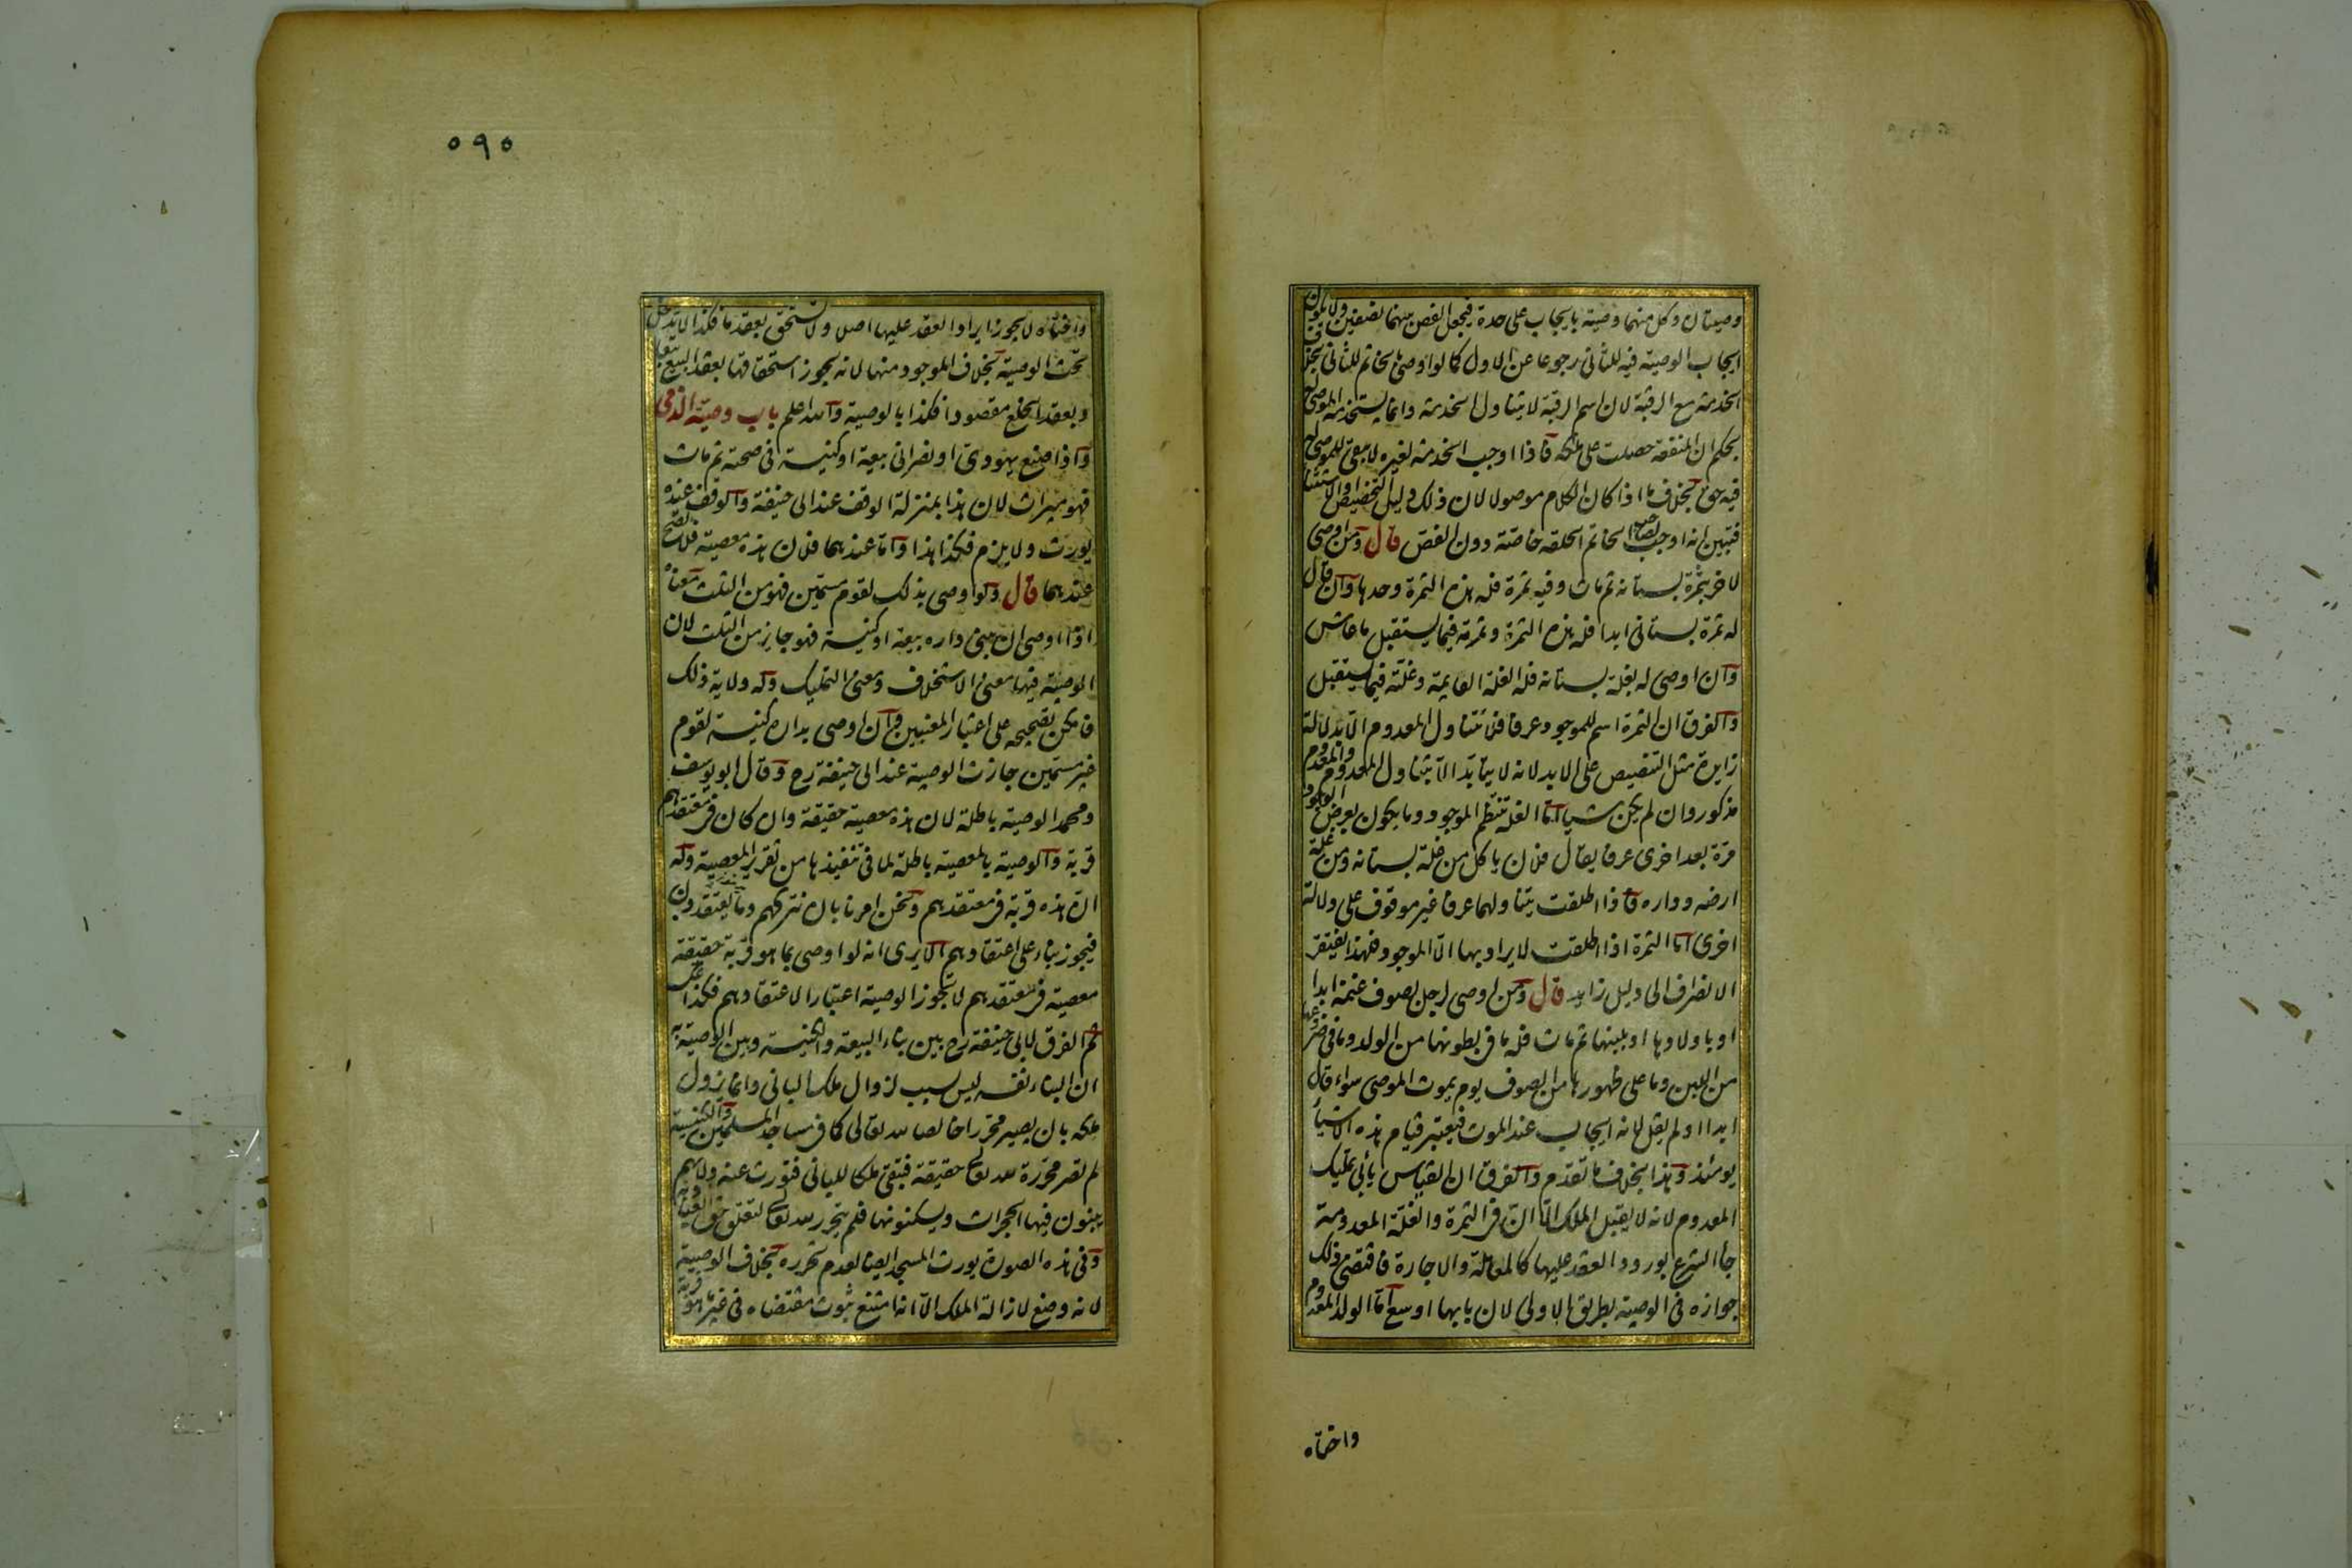 وصيتان وكل منهما وصية بايجاب على حدة فيجعل الفص بينهما نصفين ولا يكون
ايجاب الوصية فيه للثاني رجوعا عن الاول كما لو اوصى بالخاتم للثاني بخلاف
الخدمة مع الرقبة لان اسم الرقبة لا يتناول الخدمة وانما يستخدمه الموصى له
بحكم ان المنفعة حصلت على ملكه فاذا اوجب الخدمة لغيره لا يبقى للموصى له
فيه حق بخلاف ما اذا كان الكلام موصولا لان ذلك دليل التخصيص والاستثناء
فتبين انه اوجب لصاحب الخاتم الحلقة خاصة دون الفص قال ومن اوصى
لاخر بثمرة بستانه ثم مات وفيه ثمرة فله هذه الثمرة وحدها وان قال
له ثمرة بستاني ابدا فله هذه الثمرة وثمرته فيما يستقبل ما عاش
وان اوصى له بغلة بستانه فله الغلة القايمة وغلته فيما يستقبل
والفرق ان الثمرة اسم للموجود عرفا فلا تتناول المعدوم الا بدلالة
زايدة مثل التنصيص على الابد لانه لا يتأبد الا بتناول المعدوم والمعدوم
مذكور وان لم يكن شيأ اما الغلة تنتظم الموجود وما يكون بعرض الوجود
مرة بعد اخرى عرفا يقال فلان ياكل من غلة بستانه ومن غلة
ارضه وداره فاذا اطلقت يتناولهما عرفا غير موقوف على دلالة
اخرى اما الثمرة اذا اطلقت لا يراد بها الا الموجود فلهذا يفتقر
الانصراف الى دليل زايد قال ومن اوصى لرجل بصوف غنمه ابدا
او باولادها او بلبنها ثم مات فله ما في بطونها من الولد وما في ضروعها
من اللبن وما على ظهورها من الصوف يوم يموت الموصى سواء قال
ابدا او لم يقل لانه ايجاب عند الموت فيعتبر قيام هذه الاشياء
يومئذ وهذا بخلاف ما تقدم والفرق ان القياس يأبى تمليك
المعدوم لانه لا يقبل الملك الا ان في الثمرة والغلة المعدومة
جاء الشرع بورود العقد عليها كالمعاملة والاجارة فاقتضى ذلك
جوازه في الوصية بطريق الاولى لان بابها اوسع اما الولد المعدوم
واختاه
٥٩٥
واختاه لا يجوز ايراد العقد عليها اصلا ولا تستحق بعقد ما فكذا لا يدخل
تحت الوصية بخلاف الموجود منها لانه يجوز استحقاقها بعقد البيع تبعا
وبعقد الخلع مقصودا فكذا بالوصية والله اعلم باب وصية الذمى
واذا صنع يهودى او نصرانى بيعة او كنيسة فى صحته ثم مات
فهو ميراث لان هذا بمنزلة الوقف عند ابى حنيفة والوقف عنده
يورث ولا يلزم فكذا هذا واما عندهما فلان هذه معصية فلا تصح
عندهما قال ولو اوصى بذلك لقوم مسمين فهو من الثلث معناه
اذا اوصى ان يبنى داره بيعة او كنيسة فهو جايز من الثلث لان
الوصية فيها معنى الاستخلاف ومعنى التمليك وله ولاية ذلك
فامكن تصحيحه على اعتبار المعنيين وان اوصى بداره كنيسة لقوم
غير مسمين جازت الوصية عند ابى حنيفة رح وقال ابو يوسف
ومحمد الوصية باطلة لان هذه معصية حقيقة وان كان فى معتقدهم
قربة والوصية بالمعصية باطلة لما فى تنفيذها من تقرير المعصية وله
ان هذه قربة فى معتقدهم ونحن امرنا بان نتركهم وما يعتقدون
فيجوز بناء على اعتقادهم الا يرى انه لو اوصى بما هو قربة حقيقة
معصية فى معتقدهم لا يجوز الوصية اعتبارا لاعتقادهم فكذا عكسه
ثم الفرق لابى حنيفة رح بين بناء البيعة والكنيسة وبين الوصية به
ان البناء نفسه ليس بسبب لزوال ملك البانى وانما يزول
ملكه بان يصير محررا خالصا لله تعالى كما فى مساجد المسلمين والكنيسة
لم تصر محررة لله تعالى حقيقة فتبقى ملكا للبانى فتورث عنه ولانهم
يبنون فيها الحجرات ويسكنونها فلم يتحرر لله تعالى لتعلق حق العباد به
وفى هذه الصورة يورث المسجد ايضا لعدم تحرره بخلاف الوصية
لانه وضع لازالة الملك الا انه امتنع ثبوت مقتضاه فى غير ما هو قربة